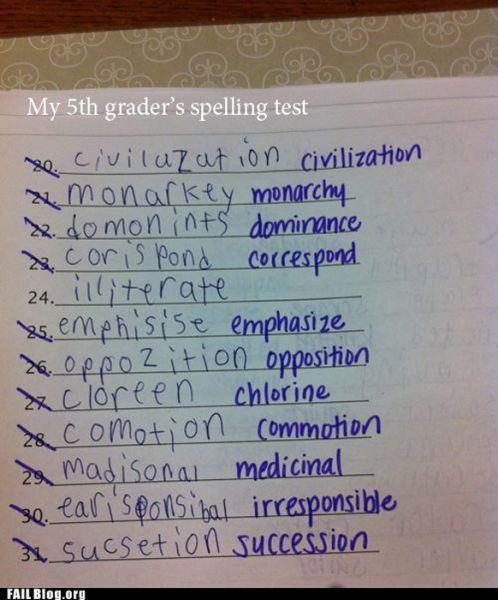 My 5th grader's spelling test
20. civilazation civilization
21. monarkey monarchy
22. domonints dominance
23. corispond correspond
24. illiterate
25. emphisise emphasize
26. oppozition opposition
27. cloreen chlorine
28. comotion commotion
29. madisonal medicinal
30. earisponsibal irresponsible
31. sucsetion succession
FAILBlog.org